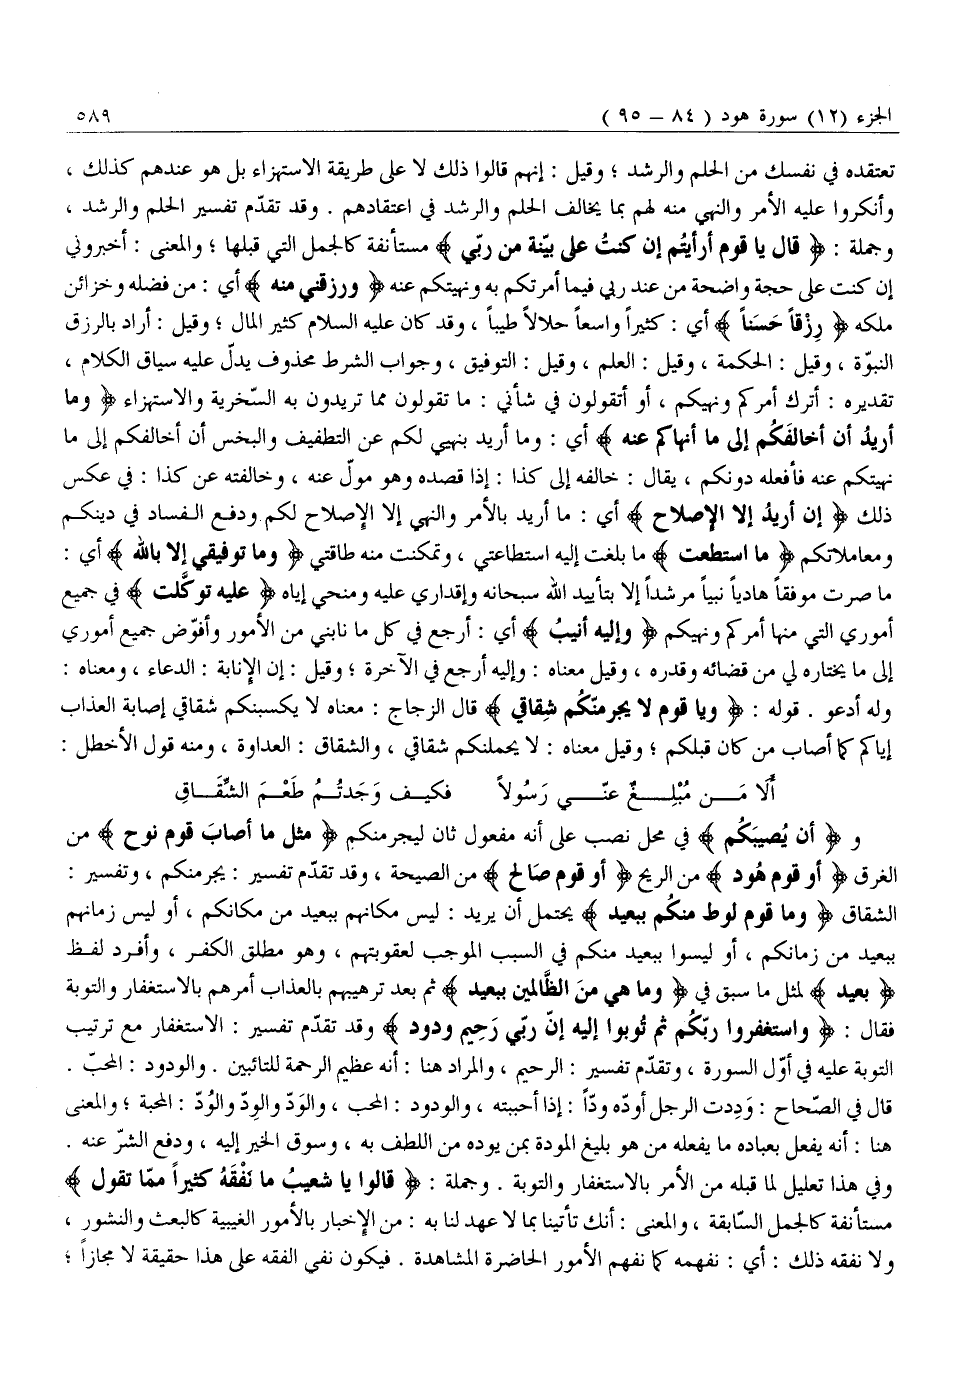 الجزء (١٢) سورة هود ( ٨٤ – ٩٥ ) ٥٨٩
تعتقده في نفسك من الحلم والرشد ؛ وقيل : إنهم قالوا ذلك لا على طريقة الاستهزاء بل هو عندهم كذلك ،
وأنكروا عليه الأمر والنهي منه لهم بما يخالف الحلم والرشد في اعتقادهم . وقد تقدّم تفسير الحلم والرشد ،
وجملة : ﴿ قال يا قوم أرأيتُم إن كنتُ على بيّنة من ربّي ﴾ مستأنفة كالجمل التي قبلها ؛ والمعنى : أخبروني
إن كنت على حجة واضحة من عند ربي فيما أمرتكم به ونهيتكم عنه ﴿ ورزقني منه ﴾ أي : من فضله وخزائن
ملكه ﴿ رِزْقاً حَسَناً ﴾ أي : كثيراً واسعاً حلالاً طيباً ، وقد كان عليه السلام كثير المال ؛ وقيل : أراد بالرزق
النبوّة ، وقيل : الحكمة ، وقيل : العلم ، وقيل : التوفيق ، وجواب الشرط محذوف يدلّ عليه سياق الكلام ،
تقديره : أترك أمركم ونهيكم ، أو أتقولون في شأني : ما تقولون مما تريدون به السّخرية والاستهزاء ﴿ وما
أريدُ أن أخالفَكُم إلى ما أنهاكم عنه ﴾ أي : وما أريد بنهيي لكم عن التطفيف والبخس أن أخالفكم إلى ما
نهيتكم عنه فأفعله دونكم ، يقال : خالفه إلى كذا : إذا قصده وهو مولّ عنه ، وخالفته عن كذا : في عكس
ذلك ﴿ إن أريدُ إلا الإصلاح ﴾ أي : ما أريد بالأمر والنهي إلا الإصلاح لكم ودفع الفساد في دينكم
ومعاملاتكم ﴿ ما استطعت ﴾ ما بلغت إليه استطاعتي ، وتمكنت منه طاقتي ﴿ وما توفيقي إلا بالله ﴾ أي :
ما صرت موفقاً هادياً نبياً مرشداً إلا بتأييد الله سبحانه وإقداري عليه ومنحي إياه ﴿ عليه توكَّلت ﴾ في جميع
أموري التي منها أمركم ونهيكم ﴿ وإليه أنيبُ ﴾ أي : أرجع في كل ما نابني من الأمور وأفوّض جميع أموري
إلى ما يختاره لي من قضائه وقدره ، وقيل معناه : وإليه أرجع في الآخرة ؛ وقيل : إن الإنابة : الدعاء ، ومعناه :
وله أدعو . قوله : ﴿ ويا قوم لا يجرمنّكُم شِقاقي ﴾ قال الزجاج : معناه لا يكسبنكم شقاقي إصابة العذاب
إياكم كما أصاب من كان قبلكم ؛ وقيل معناه : لا يحملنكم شقاقي ، والشقاق : العداوة ، ومنه قول الأخطل :
أَلَا مَــن مُبْلِــغٌ عنّــي رَسُولاً فكيــف وَجَدتُــم طَعْــمَ الشِّقَــاقِ
و ﴿ أن يُصيبَكُم ﴾ في محل نصب على أنه مفعول ثان ليجرمنكم ﴿ مثل ما أصابَ قوم نوح ﴾ من
الغرق ﴿ أو قوم هُود ﴾ من الريح ﴿ أو قوم صَالح ﴾ من الصيحة ، وقد تقدّم تفسير : يجرمنكم ، وتفسير :
الشقاق ﴿ وما قوم لوط منكُم ببعيد ﴾ يحتمل أن يريد : ليس مكانهم ببعيد من مكانكم ، أو ليس زمانهم
ببعيد من زمانكم ، أو ليسوا ببعيد منكم في السبب الموجب لعقوبتهم ، وهو مطلق الكفر ، وأفرد لفظ
﴿ بعيد ﴾ لمثل ما سبق في ﴿ وما هي منَ الظَّالمين ببعيد ﴾ ثم بعد ترهيبهم بالعذاب أمرهم بالاستغفار والتوبة
فقال : ﴿ واستغفروا ربّكُم ثم تُوبوا إليه إنّ ربّي رَحِيم ودود ﴾ وقد تقدّم تفسير : الاستغفار مع ترتيب
التوبة عليه في أوّل السورة ، وتقدّم تفسير : الرحيم ، والمراد هنا : أنه عظيم الرحمة للتائبين . والودود : المحبّ .
قال في الصّحاح : وَدِدت الرجل أودّه ودّاً : إذا أحببته ، والودود : المحب ، والوَدّ والوِدّ والوُدّ : المحبة ؛ والمعنى
هنا : أنه يفعل بعباده ما يفعله من هو بليغ المودة بمن يوده من اللطف به ، وسوق الخير إليه ، ودفع الشرّ عنه .
وفي هذا تعليل لما قبله من الأمر بالاستغفار والتوبة . وجملة : ﴿ قالوا يا شعيبُ ما نفْقَهُ كثيراً ممّا تقول ﴾
مستأنفة كالجمل السّابقة ، والمعنى : أنك تأتينا بما لا عهد لنا به : من الإخبار بالأمور الغيبية كالبعث والنشور ،
ولا نفقه ذلك : أي : نفهمه كما نفهم الأمور الحاضرة المشاهدة . فيكون نفي الفقه على هذا حقيقة لا مجازاً ؛